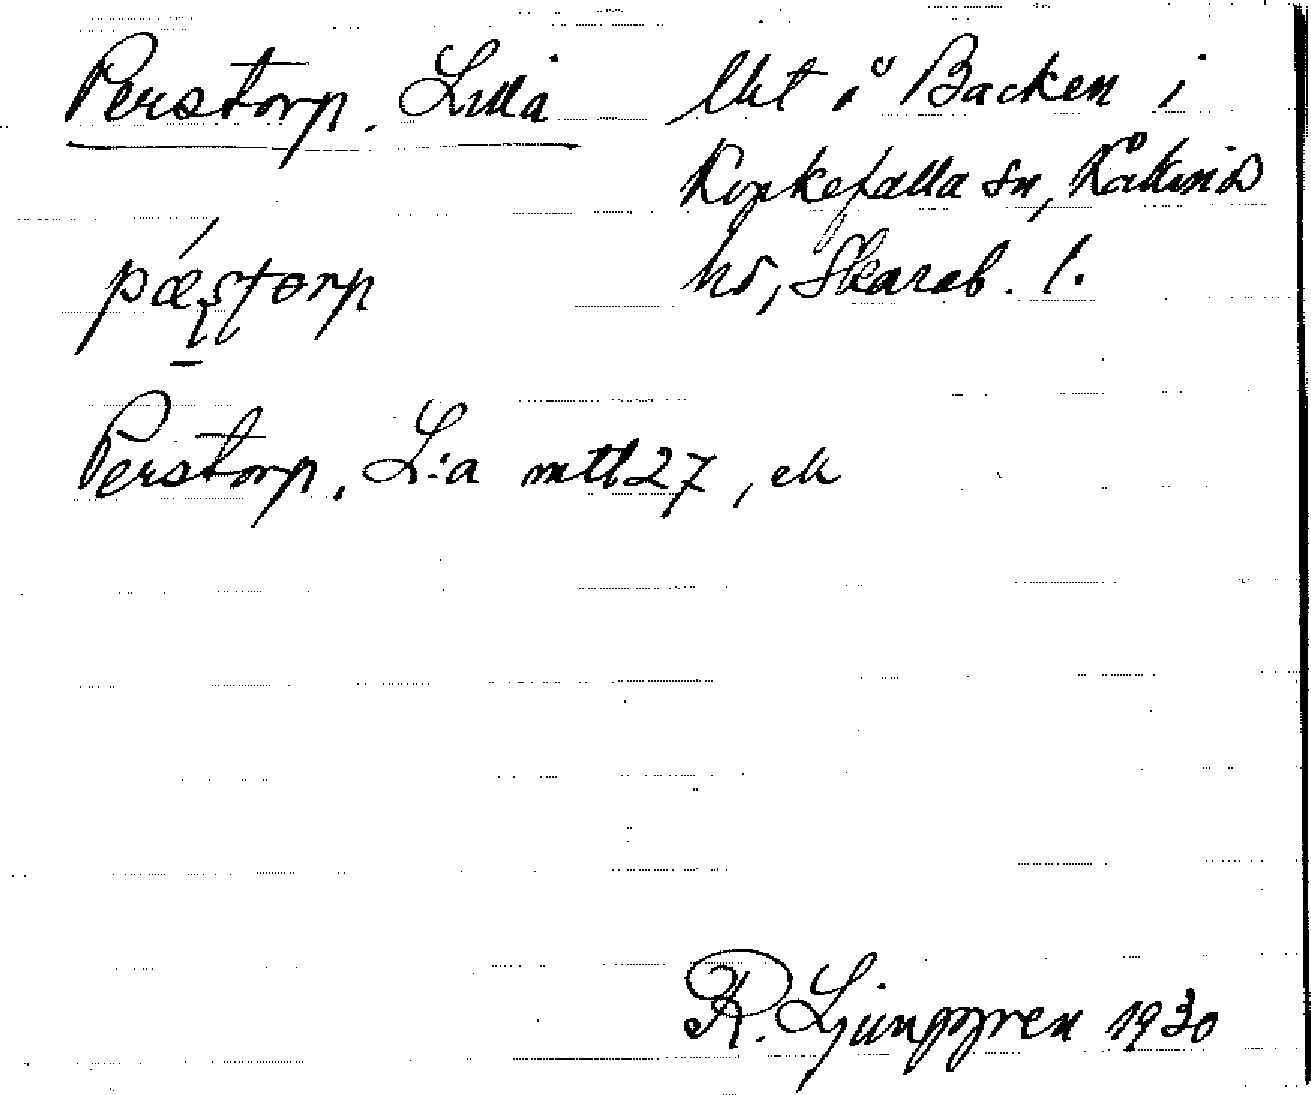 Perstorp, Lilla
Utt ö Backen i
Korkefalla sn, Kåkinds
hd, Skarab. l.
pæstorp
Perstorp, L:a mtl 27, ek
R. Ljunggren 1930